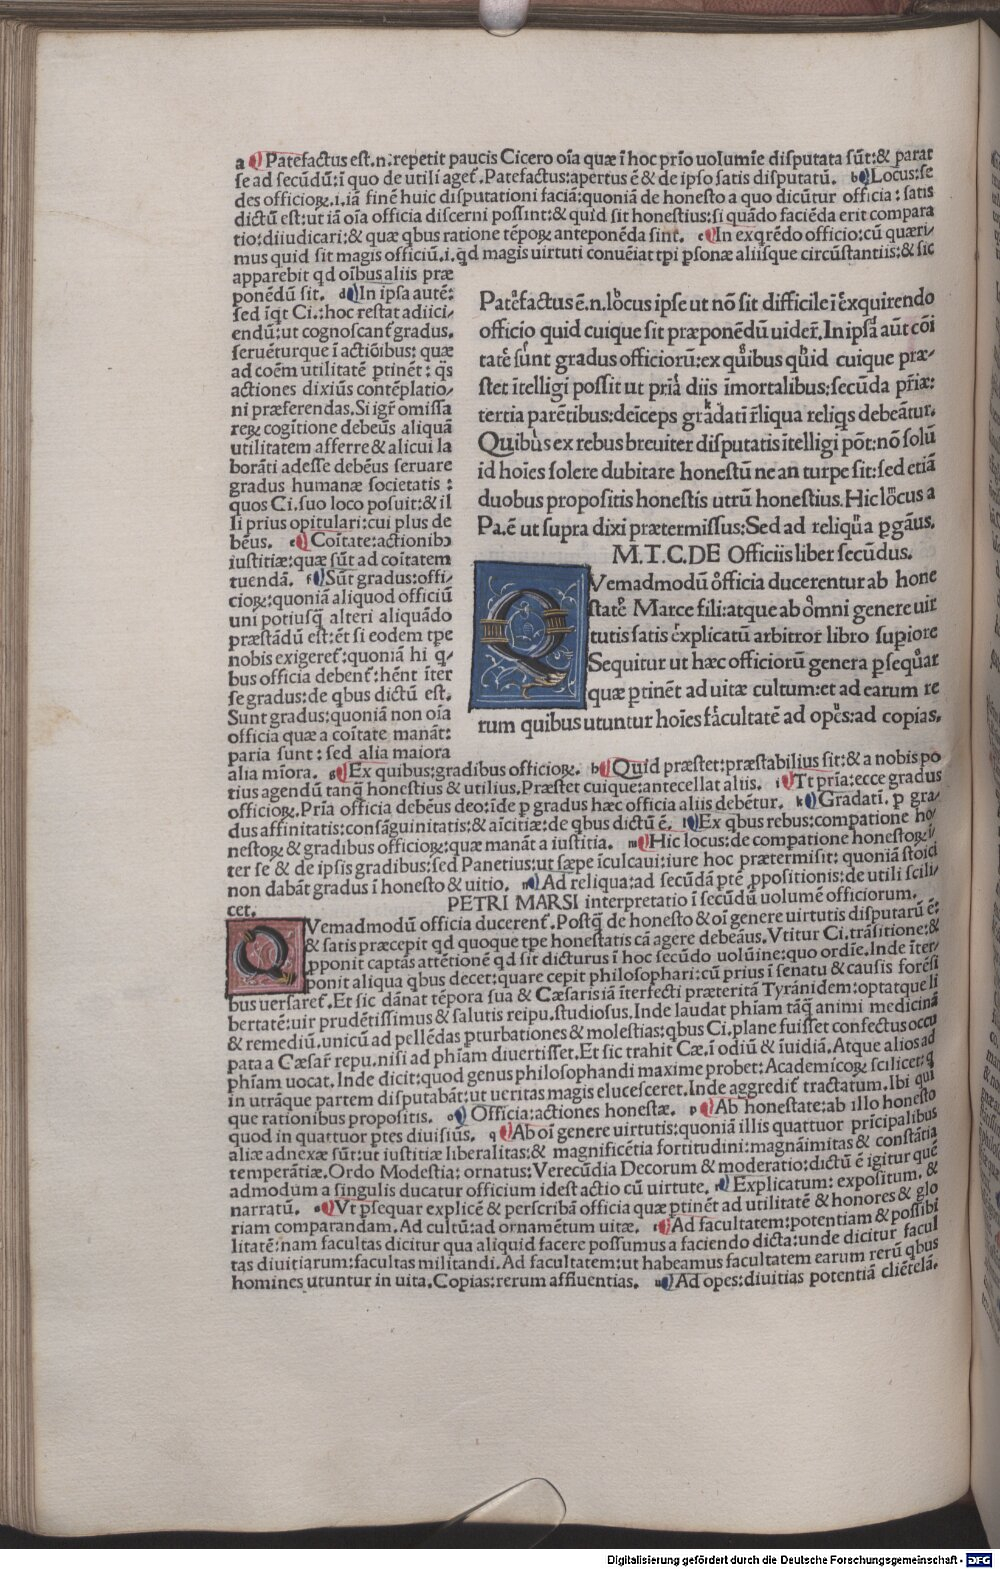 a Patefactus est.n:repetit paucis Cicero oīa quæ ī hoc prīo uolumīe disputata sūt:& parat
se ad secūdū:ī quo de utili aget̄. Patefactus:apertus ē & de ipso satis disputatū. b Locus:se
des officioꝝ.i.iā finē huic disputationi faciā:quoniā de honesto a quo dicūtur officia: satis
dictū est:ut iā oīa officia discerni possint:& quid sit honestius:si quādo faciēda erit compara
tio:diiudicari:& quæ qbus ratione tēpoꝝ anteponēda sint. c In exqrēdo officio:cū quæri/
mus quid sit magis officiū.i.qd magis uirtuti conuēiat tpi psonæ aliisque circūstantiis:& sic
apparebit qd oībus aliis præ
ponēdū sit. d In ipsa autē:
sed īqt Ci.:hoc restat adiici/
endū:ut cognoscant̄ gradus.
serueturque ī actiōibus: quæ
ad coēm utilitatē ptinēt: qs
actiones diximus contēplatio/
ni præferendas. Si igr̄ omissa
reꝝ cognitione debeūs aliquā
utilitatem afferre & alicui la
borāti adesse debēus seruare
gradus humanæ societatis:
quos Ci. suo loco posuit:& il
li prius opitulari:cui plus de
bēus. e Coītate:actionibꝫ
iustitiæ:quæ sūt ad coītatem
tuendā. f Sūt gradus:offi/
cioꝝ:quoniā aliquod officiū
uni potiusq̄ alteri aliquādo
præstādū est:et si eodem tpe
nobis exigeret̄:quoniā hi q/
bus officia debent̄:hēnt īter
se gradus:de qbus dictū est.
Sunt gradus:quoniā non oīa
officia quæ a coītate manāt:
paria sunt: sed alia maiora
alia mīora. g Ex quibus:gradibus officioꝝ. h Quid præstet:præstabilius sit:& a nobis po
tius agendū tanq̄ honestius & utilius. Præstet cuique:antecellat aliis. i Tt prīa:ecce gradus
officioꝝ. Prīa officia debēus deo:īde p gradus hæc officia aliis debētur. k Gradatī. p gra/
dus affinitatis:consāguinitatis:& aīcitiæ:de qbus dictū ē. l Ex qbus rebus:compatione ho/
nestoꝝ & gradibus officioꝝ:quæ manāt a iustitia. m Hic locus:de compatione honestoꝝ ī/
ter se & de ipsis gradibus:sed Panetius:ut sæpe īculcaui:iure hoc prætermisit: quoniā stoici
non dabāt gradus ī honesto & uitio. n Ad reliqua:ad secūdā ptē ppositionis:de utili scili/
cet.
Patefactus ē.n. locus ipse ut nō sit difficile ī exquirendo
officio quid cuique sit præponēdū uider̄. In ipsa aūt cōi
tate sunt gradus officiorū:ex quibus quid cuique præ/
stet ītelligi possit ut prīa diis īmortalibus:secūda pr̄iæ:
tertia parētibus:deīceps gradatī r̄liqua reliqs debeātur.
Quibus ex rebus breuiter disputatis ītelligi pōt:nō solū
id hoīes solere dubitare honestū ne an turpe sit:sed etiā
duobus propositis honestis utrū honestius. Hic locus a
Pa.ē ut supra dixi prætermissus:Sed ad reliqua pgāus.
M.T.C.DE Officiis liber secundus.
QVemadmodū officia ducerentur ab hone
state Marce fili:atque ab omni genere uir
tutis satis explicatū arbitror libro supiore
Sequitur ut hæc officiorū genera psequar
quæ ptinēt ad uitæ cultum:et ad earum re
rum quibus utuntur hoīes facultatē ad opes:ad copias.
PETRI MARSI interpretatio ī secūdū uolumē officiorum.
QVemadmodū officia ducerent̄. Postq̄ de honesto & oī genere uirtutis disputarū ē:
& satis præcepit qd quoque tpe honestatis cā agere debeāus. Vtitur Ci. trāsitione:&
pponit captās attētionē qd sit dicturus ī hoc secūdo uolūine:quo ordīe. Inde īter/
ponit aliqua qbus decet:quare cepit philosophari:cū prius ī senatu & causis forēsi
bus uersaret̄. Et sic dānat tēpora sua & Cæsaris iā īterfecti præteritā Tyránidem:optatque li
bertatē:uir prudētissimus & salutis reipu.studiosus. Inde laudat phīam tāq̄ animi medicinā
& remediū.unicū ad pellēdas pturbationes & molestias:qbus Ci.plane fuisset confectus occu
pata a Cæsar̄ repu.nisi ad phīam diuertisset. Et sic trahit Cæ.ī odiū & īuidiā. Atque alios ad
phīam uocat. Inde dicit:quod genus philosophandi maxime probet:Academicoꝝ scilicet:q
in utrāque partem disputabāt:ut ueritas magis elucesceret. Inde aggredit̄ tractatum. Ibi qui
que rationibus propositis. o Officia:actiones honestæ. p Ab honestate:ab illo honesto
quod in quattuor ptes diuisius. q Ab oī genere uirtutis:quoniā illis quattuor prīcipalibus
aliæ adnexæ sūt:ut iustitiæ liberalitas:& magnificētia fortitudini:magnāimitas & constātia
temperātiæ. Ordo Modestia: ornatus: Verecūdia Decorum & moderatio:dictū ē igitur quē
admodum a singulis ducatur officium idest actio cū uirtute. r Explicatum: expositum. &
narratū. s Vt psequar explicē & perscribā officia quæ ptinēt ad utilitatē & honores & glo
riam comparandam. Ad cultū:ad ornamētum uitæ. t Ad facultatem:potentiam & possibi
litatē:nam facultas dicitur qua aliquid facere possumus a faciendo dicta:unde dicitur facul
tas diuitiarum:facultas militandi. Ad facultatem:ut habeamus facultatem earum rerū qbus
homines utuntur in uita. Copias:rerum affluentias. u Ad opes:diuitias potentiā cliētelā.
Digitalisierung gefördert durch die Deutsche Forschungsgemeinschaft - DFG